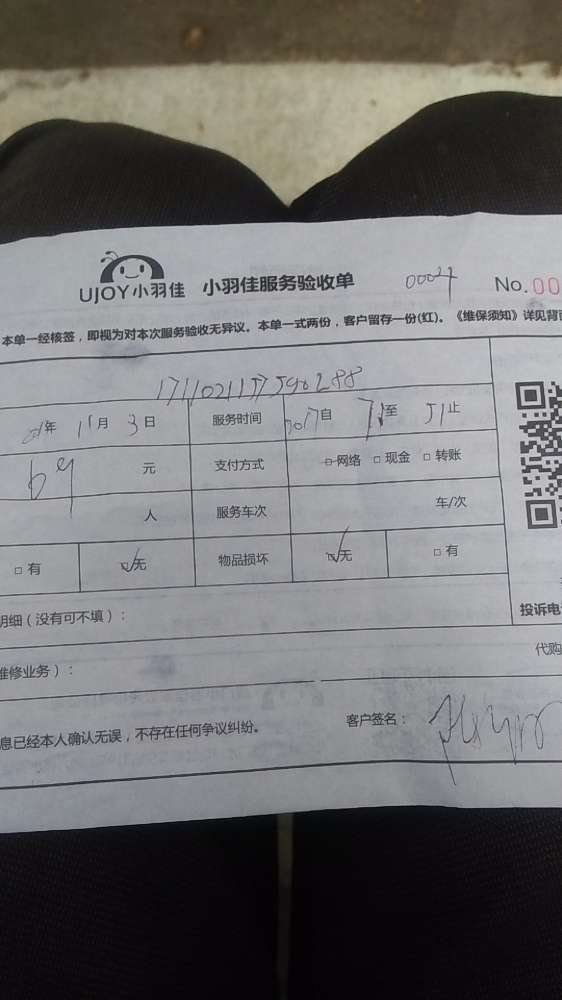 UJOY小羽佳 小羽佳服务验收单 00007 No.00
本单一经核签，即视为对本次服务验收无异议。本单一式两份，客户留存一份(红)。《维保须知》详见背面
年 11月 3日 服务时间 自 至 止
69 元 支付方式 □网络 □现金 □转账
人 服务车次 车/次
□有 ☑无 物品损坏 ☑无 □有
明细（没有可不填）：
投诉电
维修业务）：
代购
息已经本人确认无误，不存在任何争议纠纷。 客户签名：